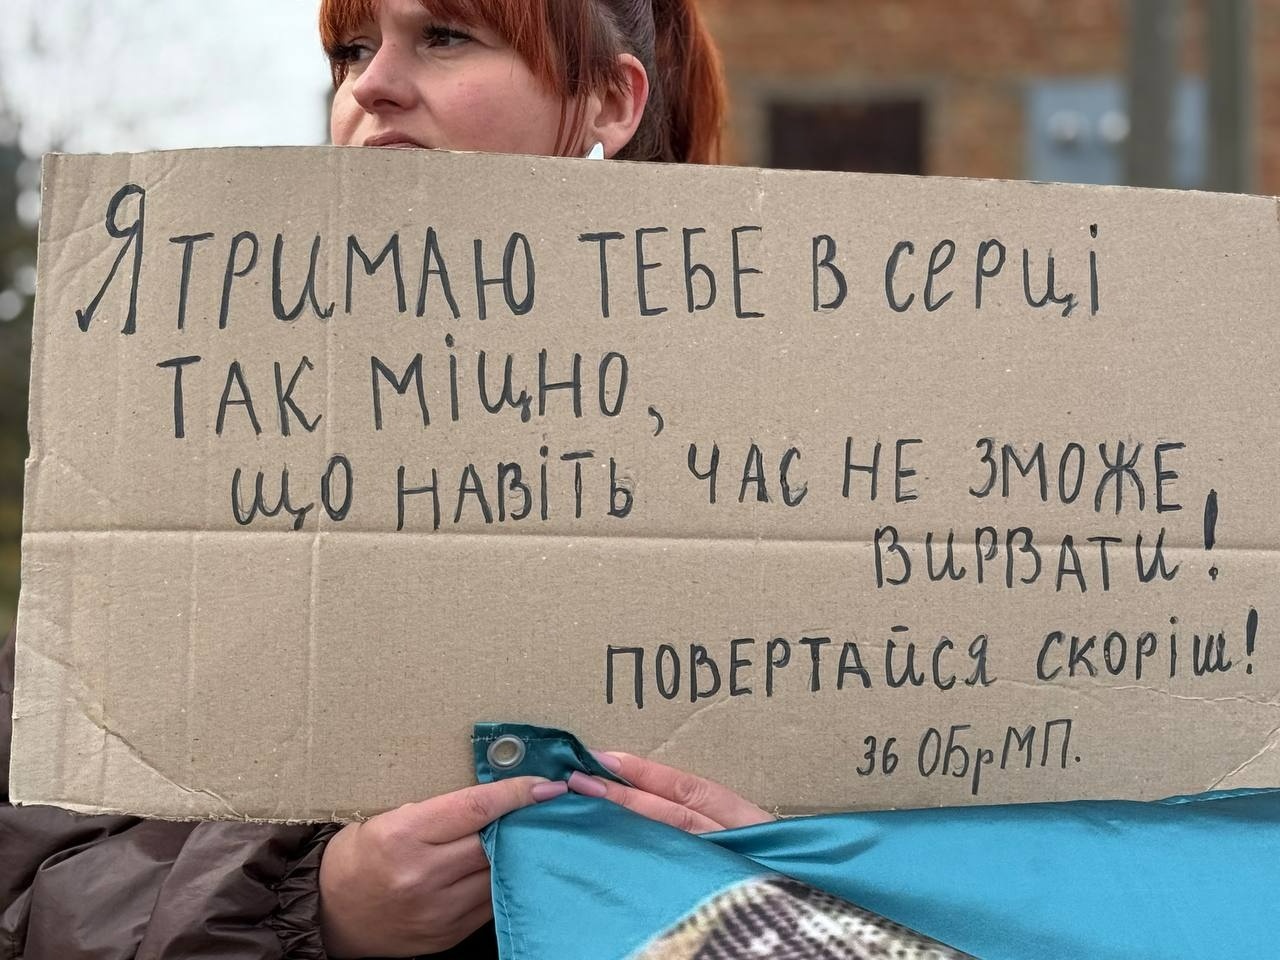 Я ТРИМАЮ ТЕБЕ В СЕРЦІ
ТАК МІЦНО,
ЩО НАВІТЬ ЧАС НЕ ЗМОЖЕ
ВИРВАТИ!
ПОВЕРТАЙСЯ СКОРІШ!
36 ОБрМП.